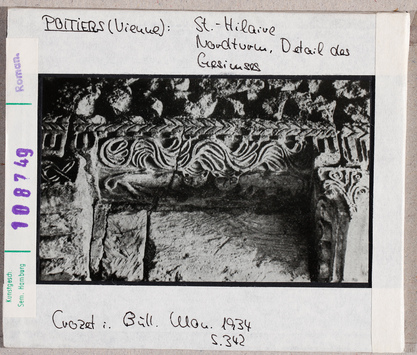 POITIERS (Vienne): St.-Hilaire
Nordturm, Detail des
Gesimses
Romam
108749
Kunstgesch.
Sem. Hamburg
Crozet i. Bull. Mon. 1934
S.342